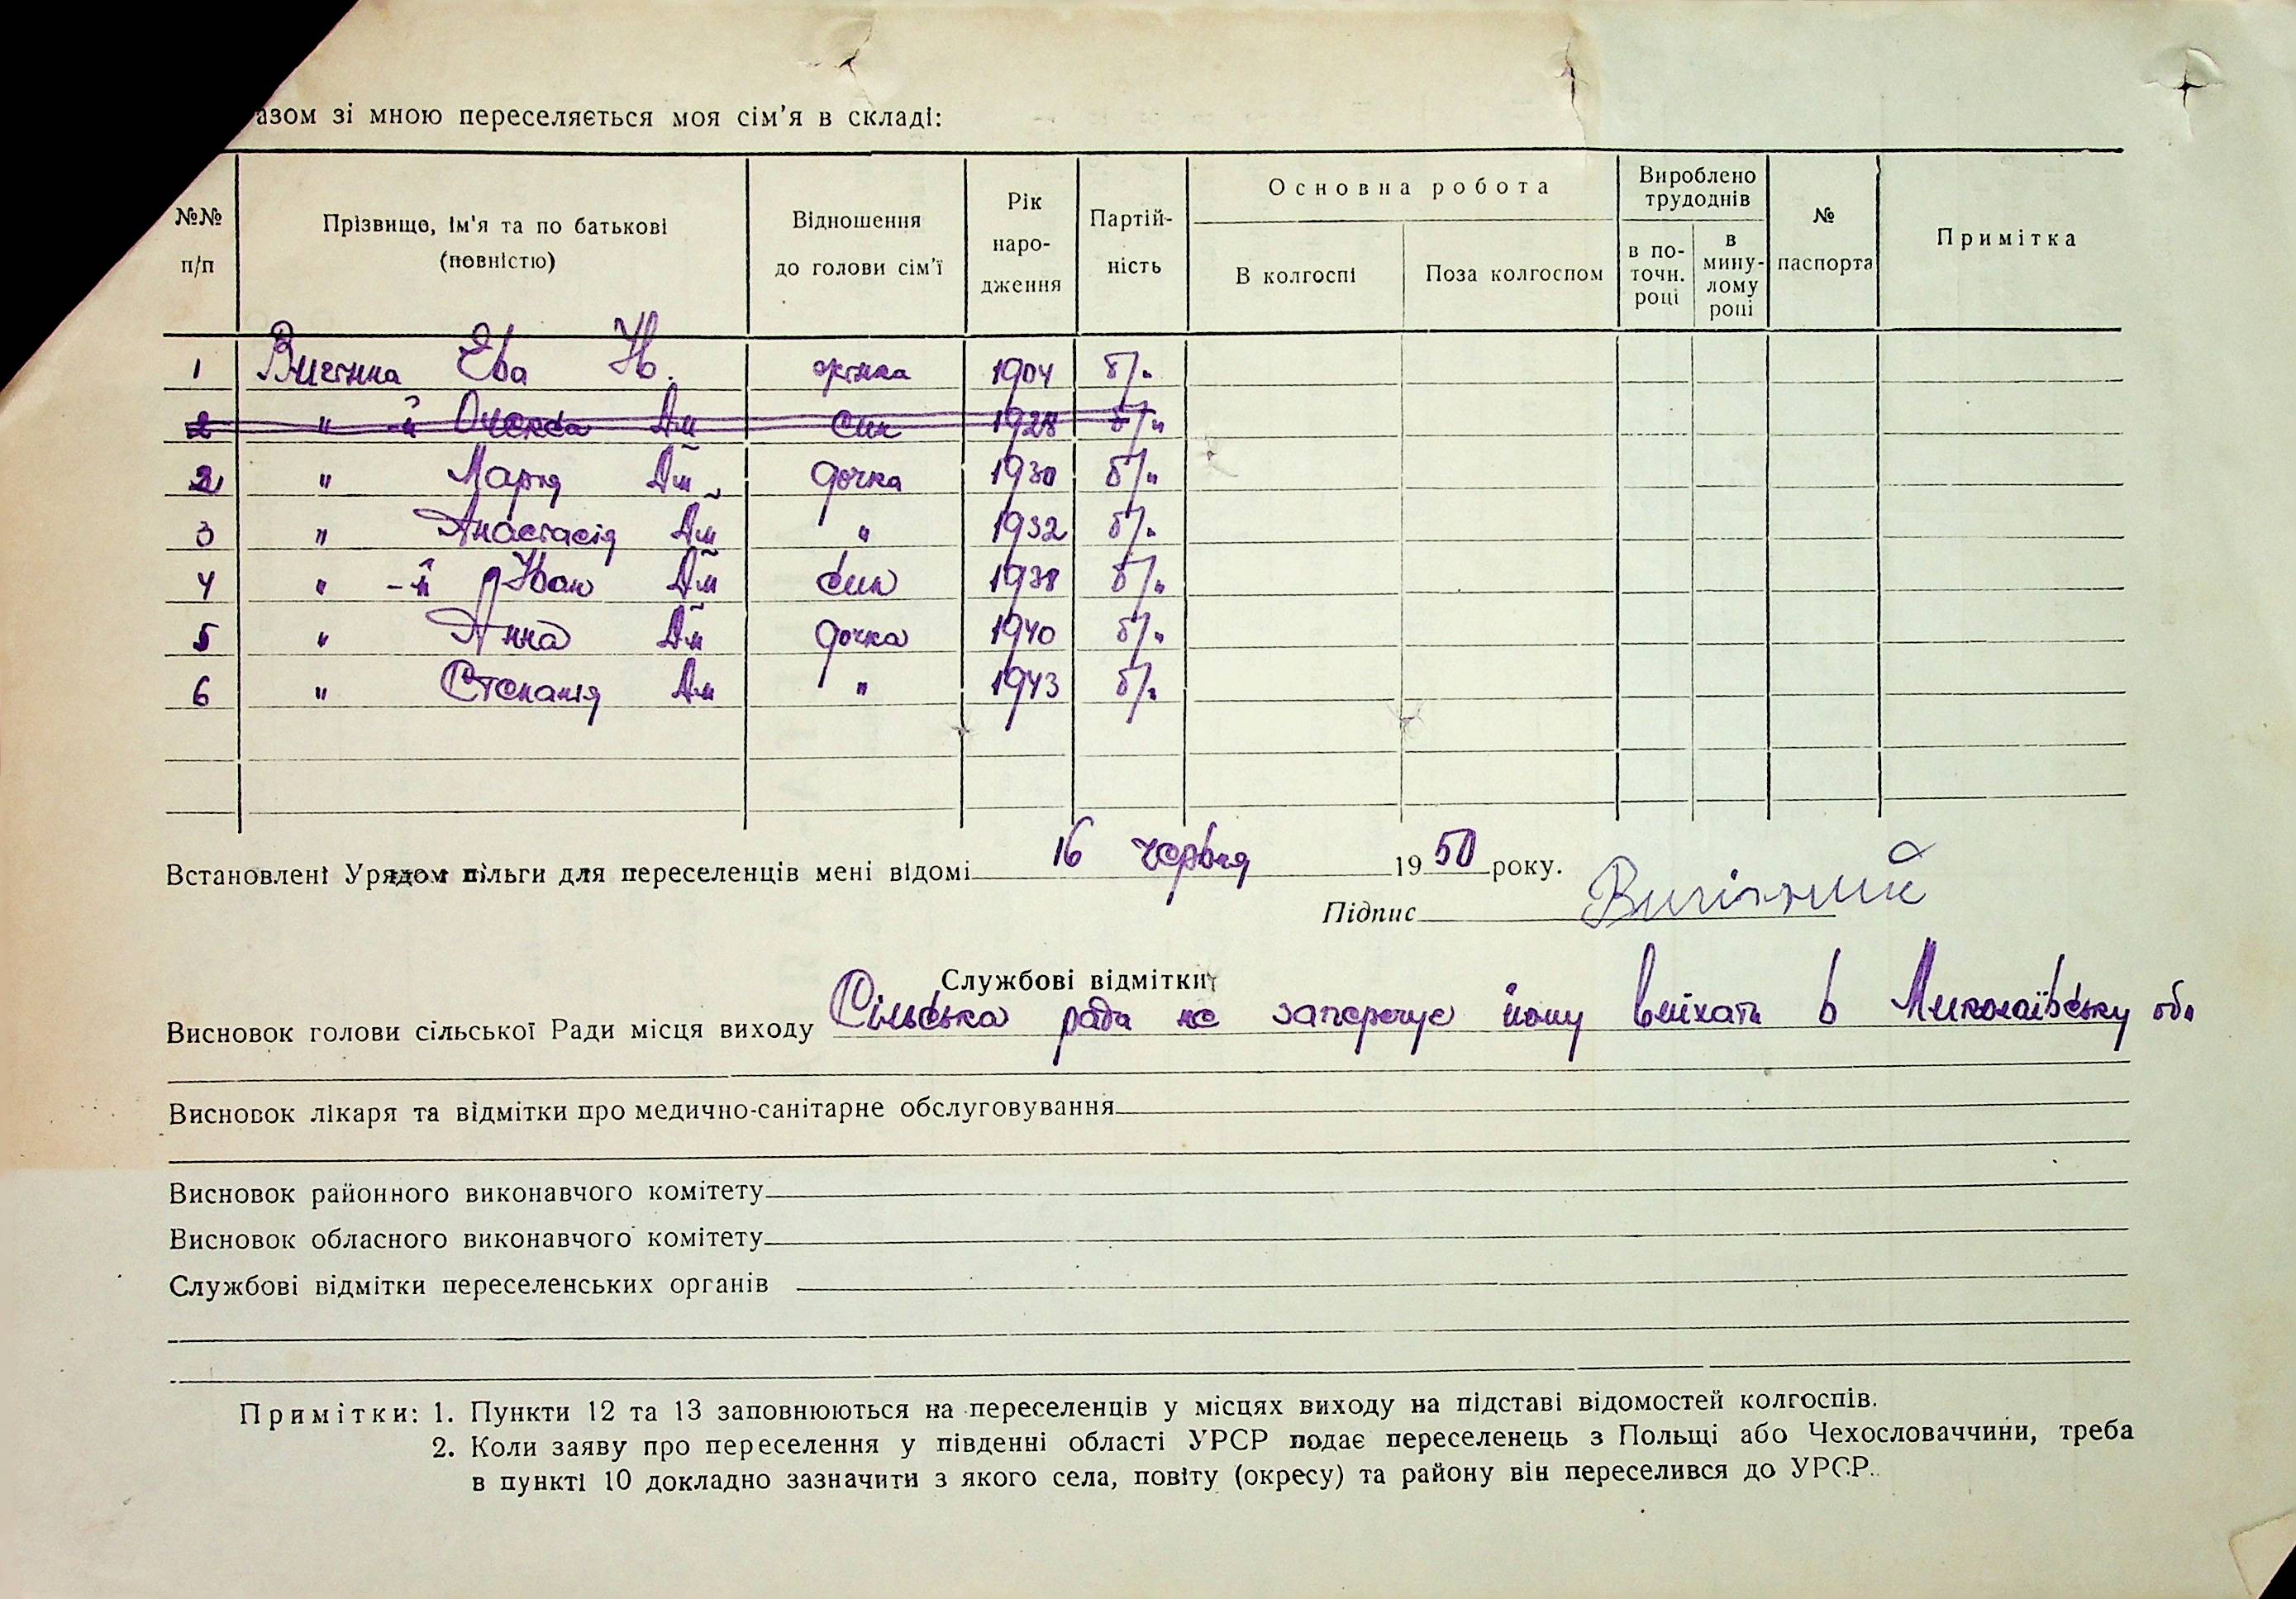 азом зі мною переселяється моя сім'я в складі:
№№ п/п | Прізвище, ім'я та по батькові (повністю) | Відношення до голови сім'ї | Рік народження | Партійність | Основна робота | В колгоспі | Поза колгоспом | Вироблено трудоднів | в поточн. році | в минулому році | № паспорта | Примітка
1 Ева Н. жінка 1904 б/п
2 " -й Ам син 1928 б/п
2 " Марія Дм дочка 1930 б/п
3 " Анастасія Дм " 1932 б/п
4 " -й Іван Дм син 1938 б/п
5 " Анна Дм дочка 1940 б/п
6 " Стефанія Дм " 1943 б/п
Встановлені Урядом пільги для переселенців мені відомі 16 червня 1950 року.
Підпис
Службові відмітки
Висновок голови сільської Ради місця виходу Сільська рада не заперечує йому виїхати в Миколаївську обл
Висновок лікаря та відмітки про медично-санітарне обслуговування
Висновок районного виконавчого комітету
Висновок обласного виконавчого комітету
Службові відмітки переселенських органів
Примітки: 1. Пункти 12 та 13 заповнюються на переселенців у місцях виходу на підставі відомостей колгоспів.
2. Коли заяву про переселення у південні області УРСР подає переселенець з Польщі або Чехословаччини, треба
в пункті 10 докладно зазначити з якого села, повіту (окресу) та району він переселився до УРСР.